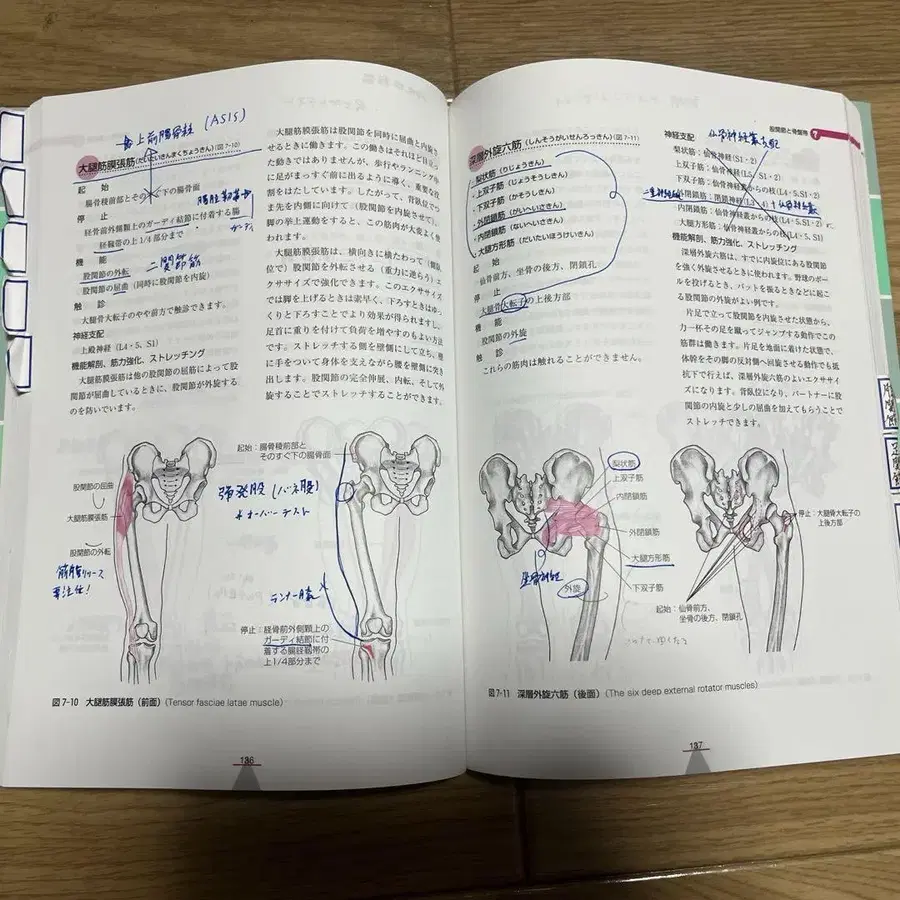 上前腸骨棘 (ASIS)
大腿筋膜張筋(だいたいきんまくちょうきん)(図7-10)
起　始
腸骨稜前部とそのすぐ下の腸骨面
停　止
脛骨前外側顆上のガーディ結節に付着する腸
脛靱帯の上1/4部分まで
機　能
二関節筋
股関節の外転
股関節の屈曲(同時に股関節を内旋)
触　診
大腿骨大転子のやや前方で触診できます。
神経支配
上殿神経(L4・5、S1)
機能解剖、筋力強化、ストレッチング
大腿筋膜張筋は他の股関節の屈筋によって股
関節が屈曲しているときに、股関節が外旋する
のを防いでいます。
大腿筋膜張筋は股関節を同時に屈曲と内旋さ
せるときに働きます。この働きはそれほど目立っ
た動きではありませんが、歩行やランニング中
に足がまっすぐ前に出るように導く、重要な役
割をはたしています。したがって、背臥位でつ
ま先を内側に向けて(股関節を内旋させて)、
脚の挙上運動をすると、この筋肉が大変よく使
われます。
大腿筋膜張筋は、横向きに横たわって(側臥
位で)股関節を外転させる(重力に逆らう)エ
クササイズで強化できます。このエクササイズ
では脚を上げるときは素早く、下ろすときはゆっ
くりと下ろすことでより効果が得られますし、
足首に重りを付けて負荷を増やすのもよい方法
です。ストレッチする側を壁側にして立ち、壁
に手をついて身体を支えながら腰を壁側に突き
出します。股関節の完全伸展、内転、そして外
旋することでストレッチすることができます。
股関節の屈曲
大腿筋膜張筋
股関節の外転
起始：腸骨稜前部と
そのすぐ下の腸骨面
弾発股(バネ股)
オーバーテスト
ランナー膝
停止：脛骨前外側顆上の
ガーディ結節に付
着する腸脛靱帯の
上1/4部分まで
図7-10　大腿筋膜張筋(前面)(Tensor fasciae latae muscle)
136
股関節と骨盤帯 7
深層外旋六筋(しんそうがいせんろっきん)(図7-11)
・梨状筋(りじょうきん)
・上双子筋(じょうそうしきん)
・下双子筋(かそうしきん)
・外閉鎖筋(がいへいさきん)
・内閉鎖筋(ないへいさきん)
・大腿方形筋(だいたいほうけいきん)
起　始
仙骨前方、坐骨の後方、閉鎖孔
停　止
大腿骨大転子の上後方部
機　能
股関節の外旋
触　診
これらの筋肉は触れることができません。
神経支配
仙骨神経叢支配
梨状筋：仙骨神経(S1・2)
上双子筋：仙骨神経(L5、S1・2)
下双子筋：仙骨神経叢からの枝(L4・5、S1・2)
外閉鎖筋：閉鎖神経(L3・4)
内閉鎖筋：仙骨神経叢からの枝(L4・5、S1・2)
大腿方形筋：仙骨神経叢からの枝(L4・5、S1)
機能解剖、筋力強化、ストレッチング
深層外旋六筋は、すでに内旋位にある股関節
を強く外旋させるときに使われます。野球のボー
ルを投げるとき、バットを振るときなどに起こ
る股関節の外旋がよい例です。
片足で立って股関節を内旋させた状態から、
力一杯その足を蹴ってジャンプする動作でこの
筋群は働きます。片足を地面に着けた状態で、
体幹をその脚の反対側へ回旋させる動作でも抵
抗下で行えば、深層外旋六筋のよいエクササイ
ズになります。背臥位になり、パートナーに股
関節の内旋と少しの屈曲を加えてもらうことで
ストレッチできます。
梨状筋
上双子筋
内閉鎖筋
外閉鎖筋
大腿方形筋
下双子筋
坐骨神経
外旋
停止：大腿骨大転子の
上後方部
起始：仙骨前方、
坐骨の後方、閉鎖孔
図7-11　深層外旋六筋(後面)(The six deep external rotator muscles)
137
股関節